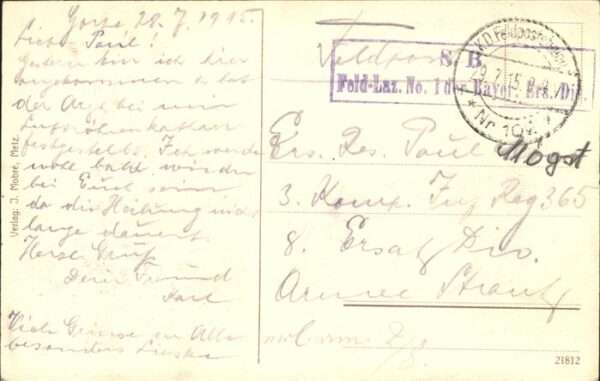 Gorze 28.7.1915.
Lieber Paul!
Gestern bin ich hier
angekommen u. hat
der Arzt bei mir
Luftröhrenkatarr
festgestellt. Ich werde
wohl bald wieder
bei Euch sein
da die Heilung nicht
lange dauert.
Herzl. Gruß
Dein Freund
Karl
Viele Grüsse an Alle
besonders
Verlag: J. Mohre, Metz.
Feldpost
S. B.
Feld-Laz. No. 1 der Bayer. Ers. Div.
K.D. Feldpost
29.7.15
Nr.
Ers. Res. Paul
Mogst
3. Komp. Inf. Reg 365
8. Ersatz Div.
Armee Strantz
21812